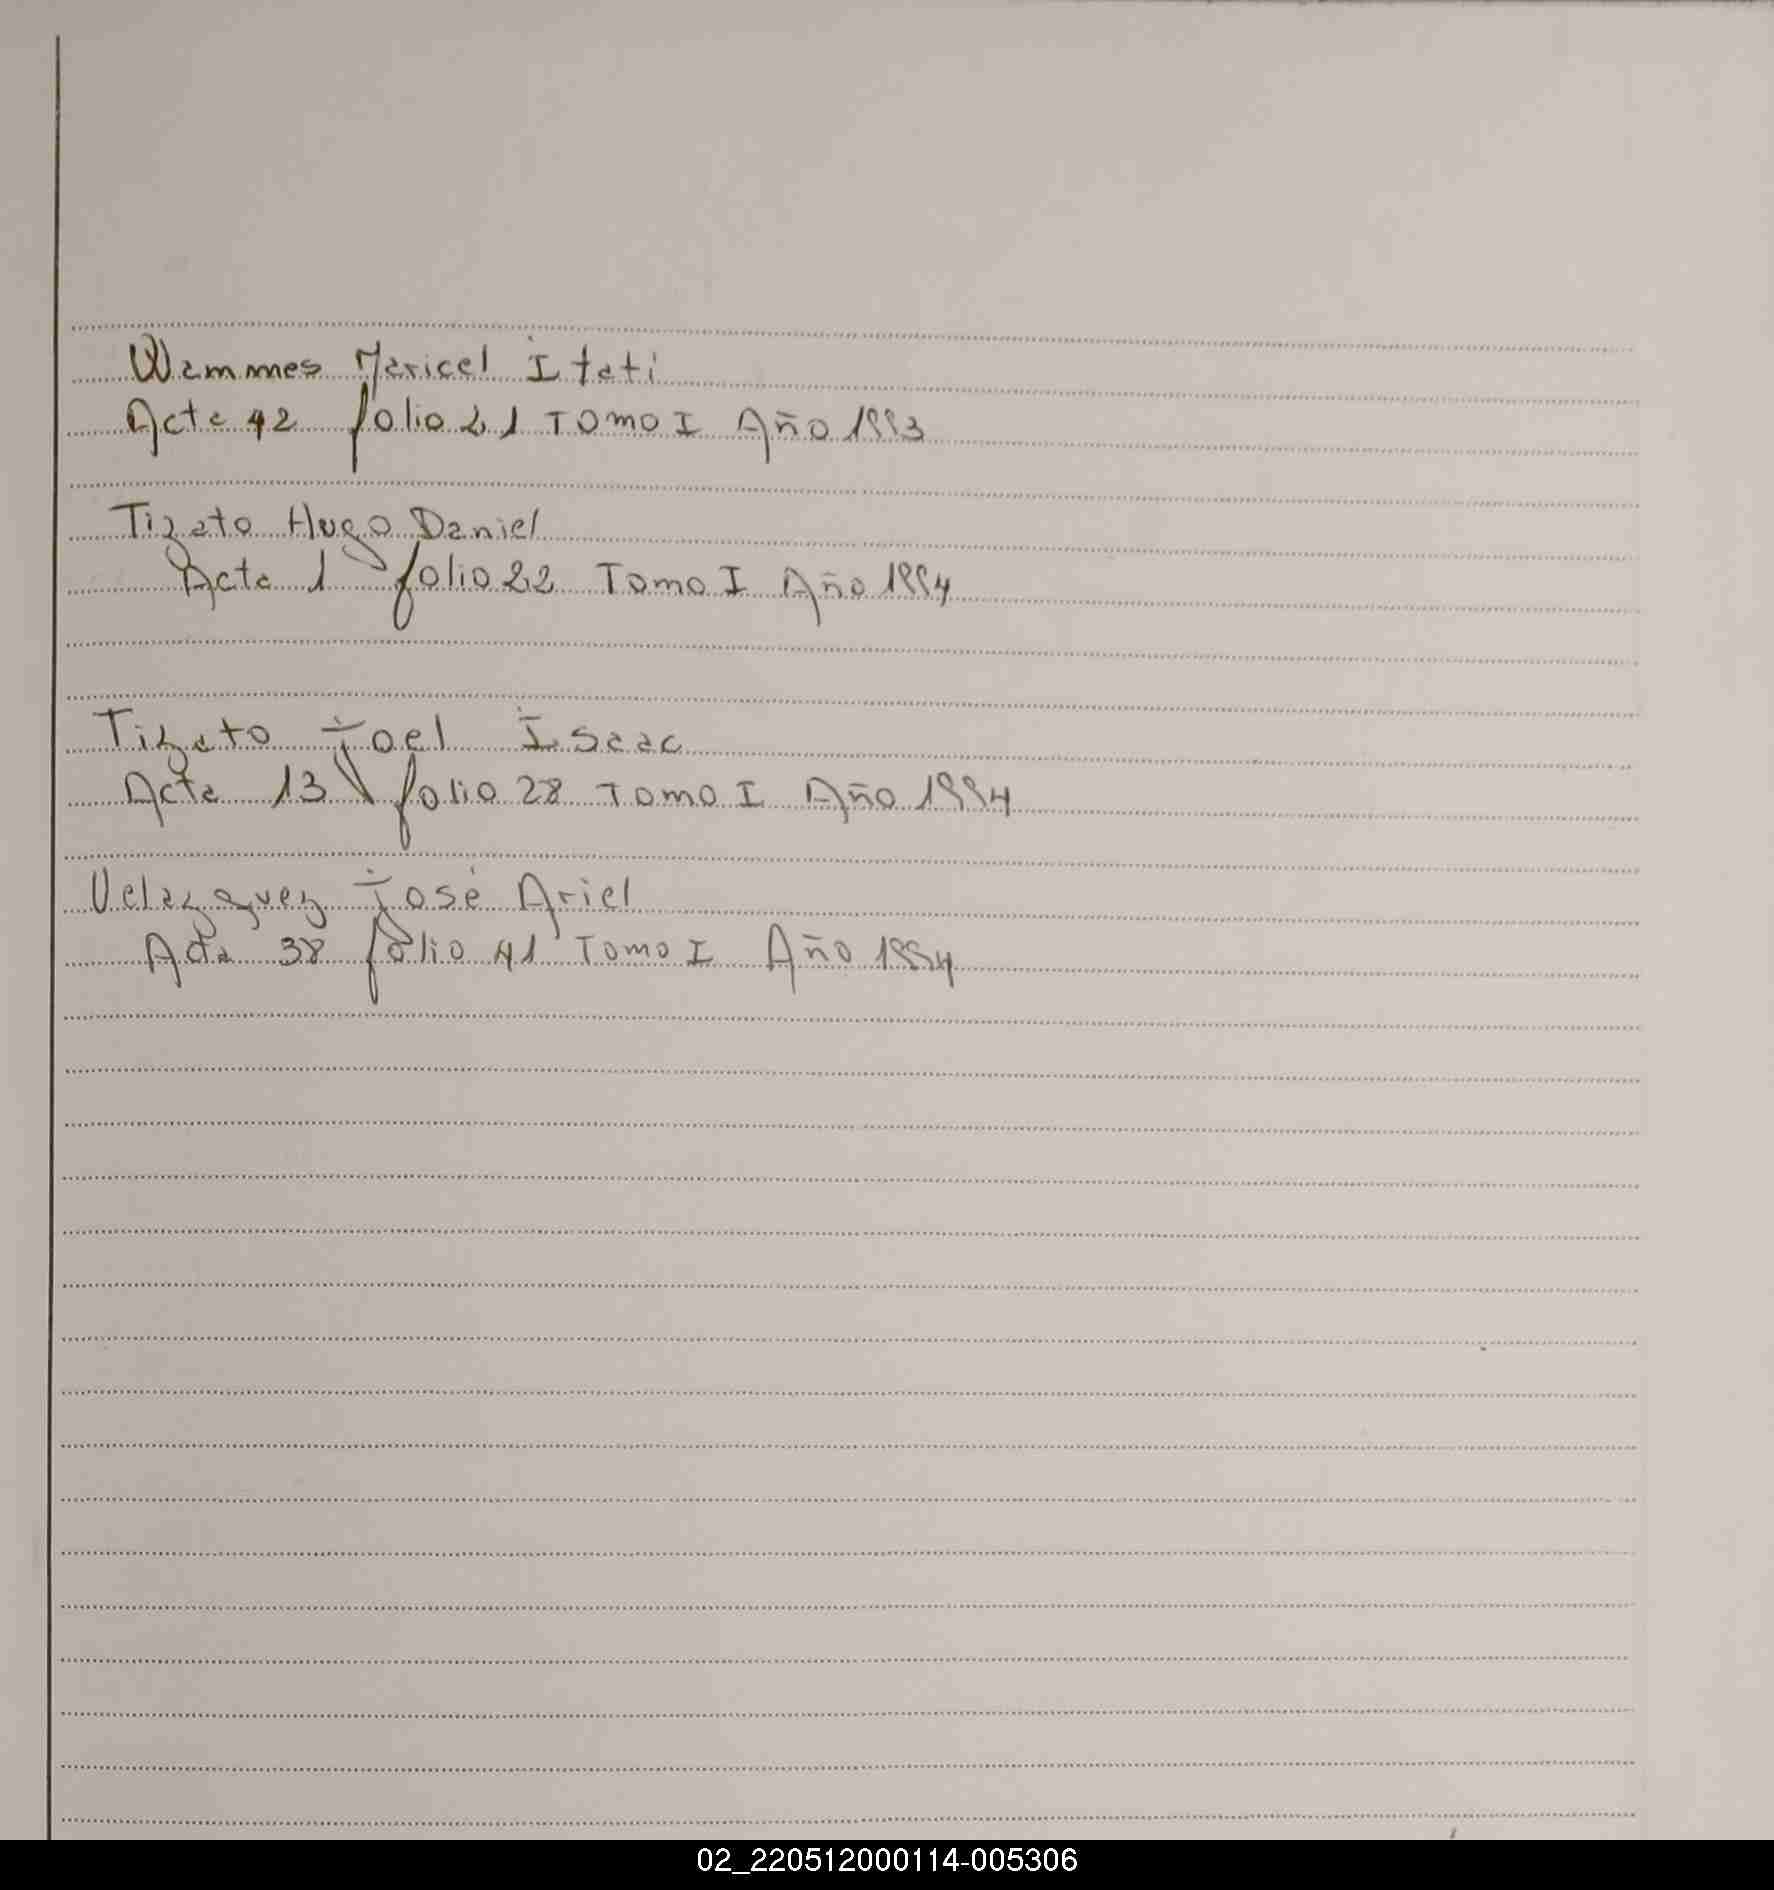 Wammes Maricel Itati
Acta 42 folio 21 Tomo I Año 1993
Tizato Hugo Daniel
Acta 1 folio 22 Tomo I Año 1994
Tizato Joel Isaac
Acta 13 folio 28 Tomo I Año 1994
Velazquez José Ariel
Acta 38 folio 41 Tomo I Año 1994
02_220512000114-005306